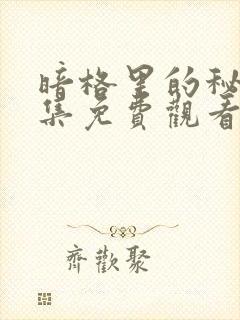 暗格里的秘
集免費觀看
齊歡聚